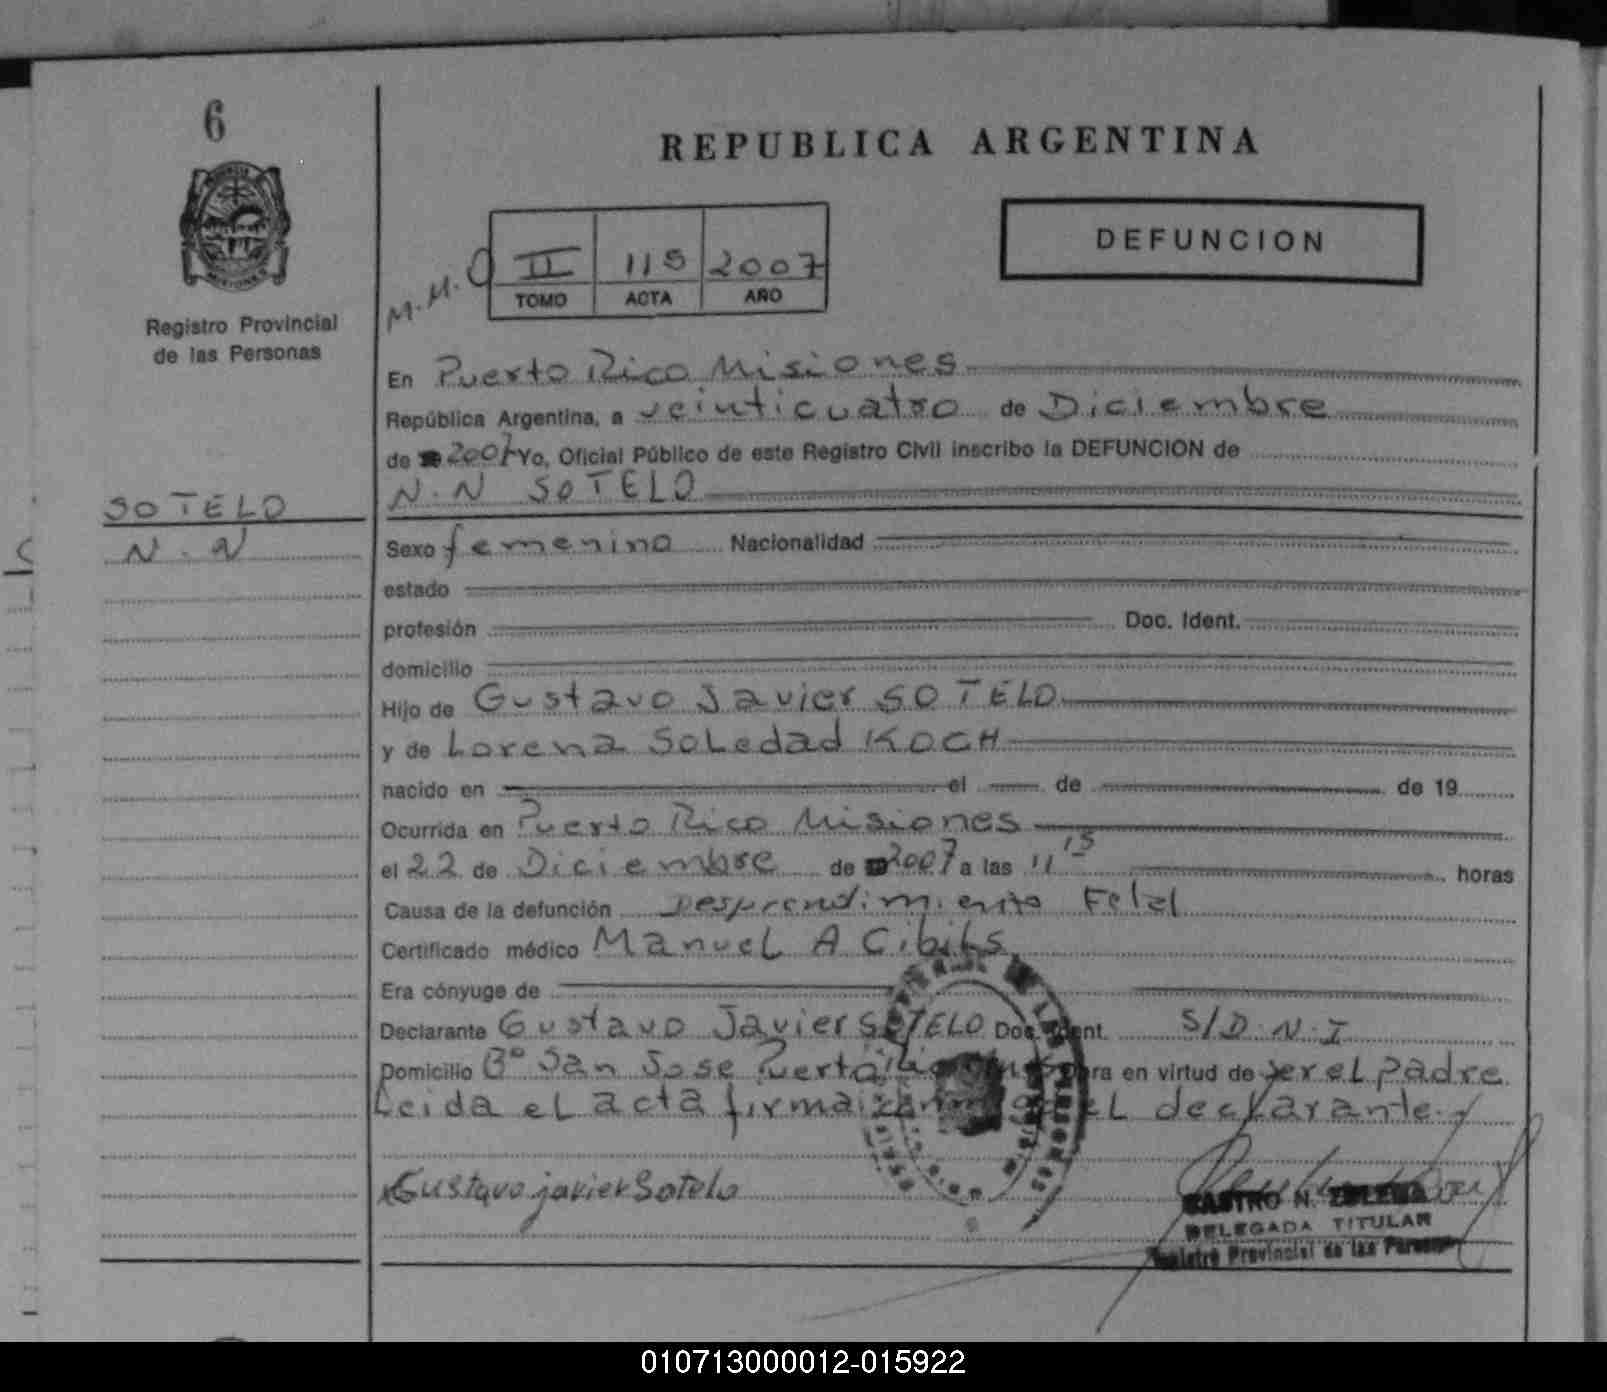 6
REPUBLICA ARGENTINA
DEFUNCION
M.M.O
II 115 2007
TOMO ACTA AÑO
Registro Provincial
de las Personas
En Puerto Rico Misiones
República Argentina, a veinticuatro de Diciembre
de 2007 Yo, Oficial Público de este Registro Civil inscribo la DEFUNCION de
N.N SOTELO
SOTELO
N.N
Sexo femenino Nacionalidad
estado
profesión Doc. Ident.
domicilio
Hijo de Gustavo Javier SOTELO
y de Lorena Soledad KOCH
nacido en el de de 19
Ocurrida en Puerto Rico Misiones
el 22 de Diciembre de 2007 a las 11 15 horas
Causa de la defunción Desprendimiento Fetal
Certificado médico Manuel A Cibils
Era cónyuge de
Declarante Gustavo Javier SOTELO Doc. Ident. S/D.N.I
Domicilio Bº San Jose Puerto Rico en virtud de ser el padre
Leida el acta firma el declarante.
Gustavo javier Sotelo
CASTRO N. ZULEMA
DELEGADA TITULAR
Registro Provincial de las Personas
010713000012-015922